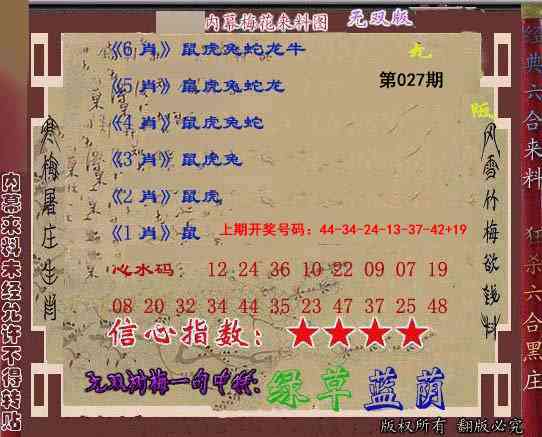 内幕梅花来料图 无双版
《6 肖》鼠虎兔蛇龙牛
《5 肖》鼠虎兔蛇龙
第027期
《4 肖》鼠虎兔蛇
《3 肖》鼠虎兔
《2 肖》鼠虎
《1 肖》鼠
上期开奖号码：44-34-24-13-37-42+19
心水码： 12 24 36 10 22 09 07 19
08 20 32 34 44 35 23 47 37 25 48
信心指数：★★★★
绿草蓝荫
版权所有 翻版必究
寒梅屠庄生肖
风雪竹梅欲钱料
内幕来料未经允许不得转贴
经典六合来料 狂杀六合黑庄